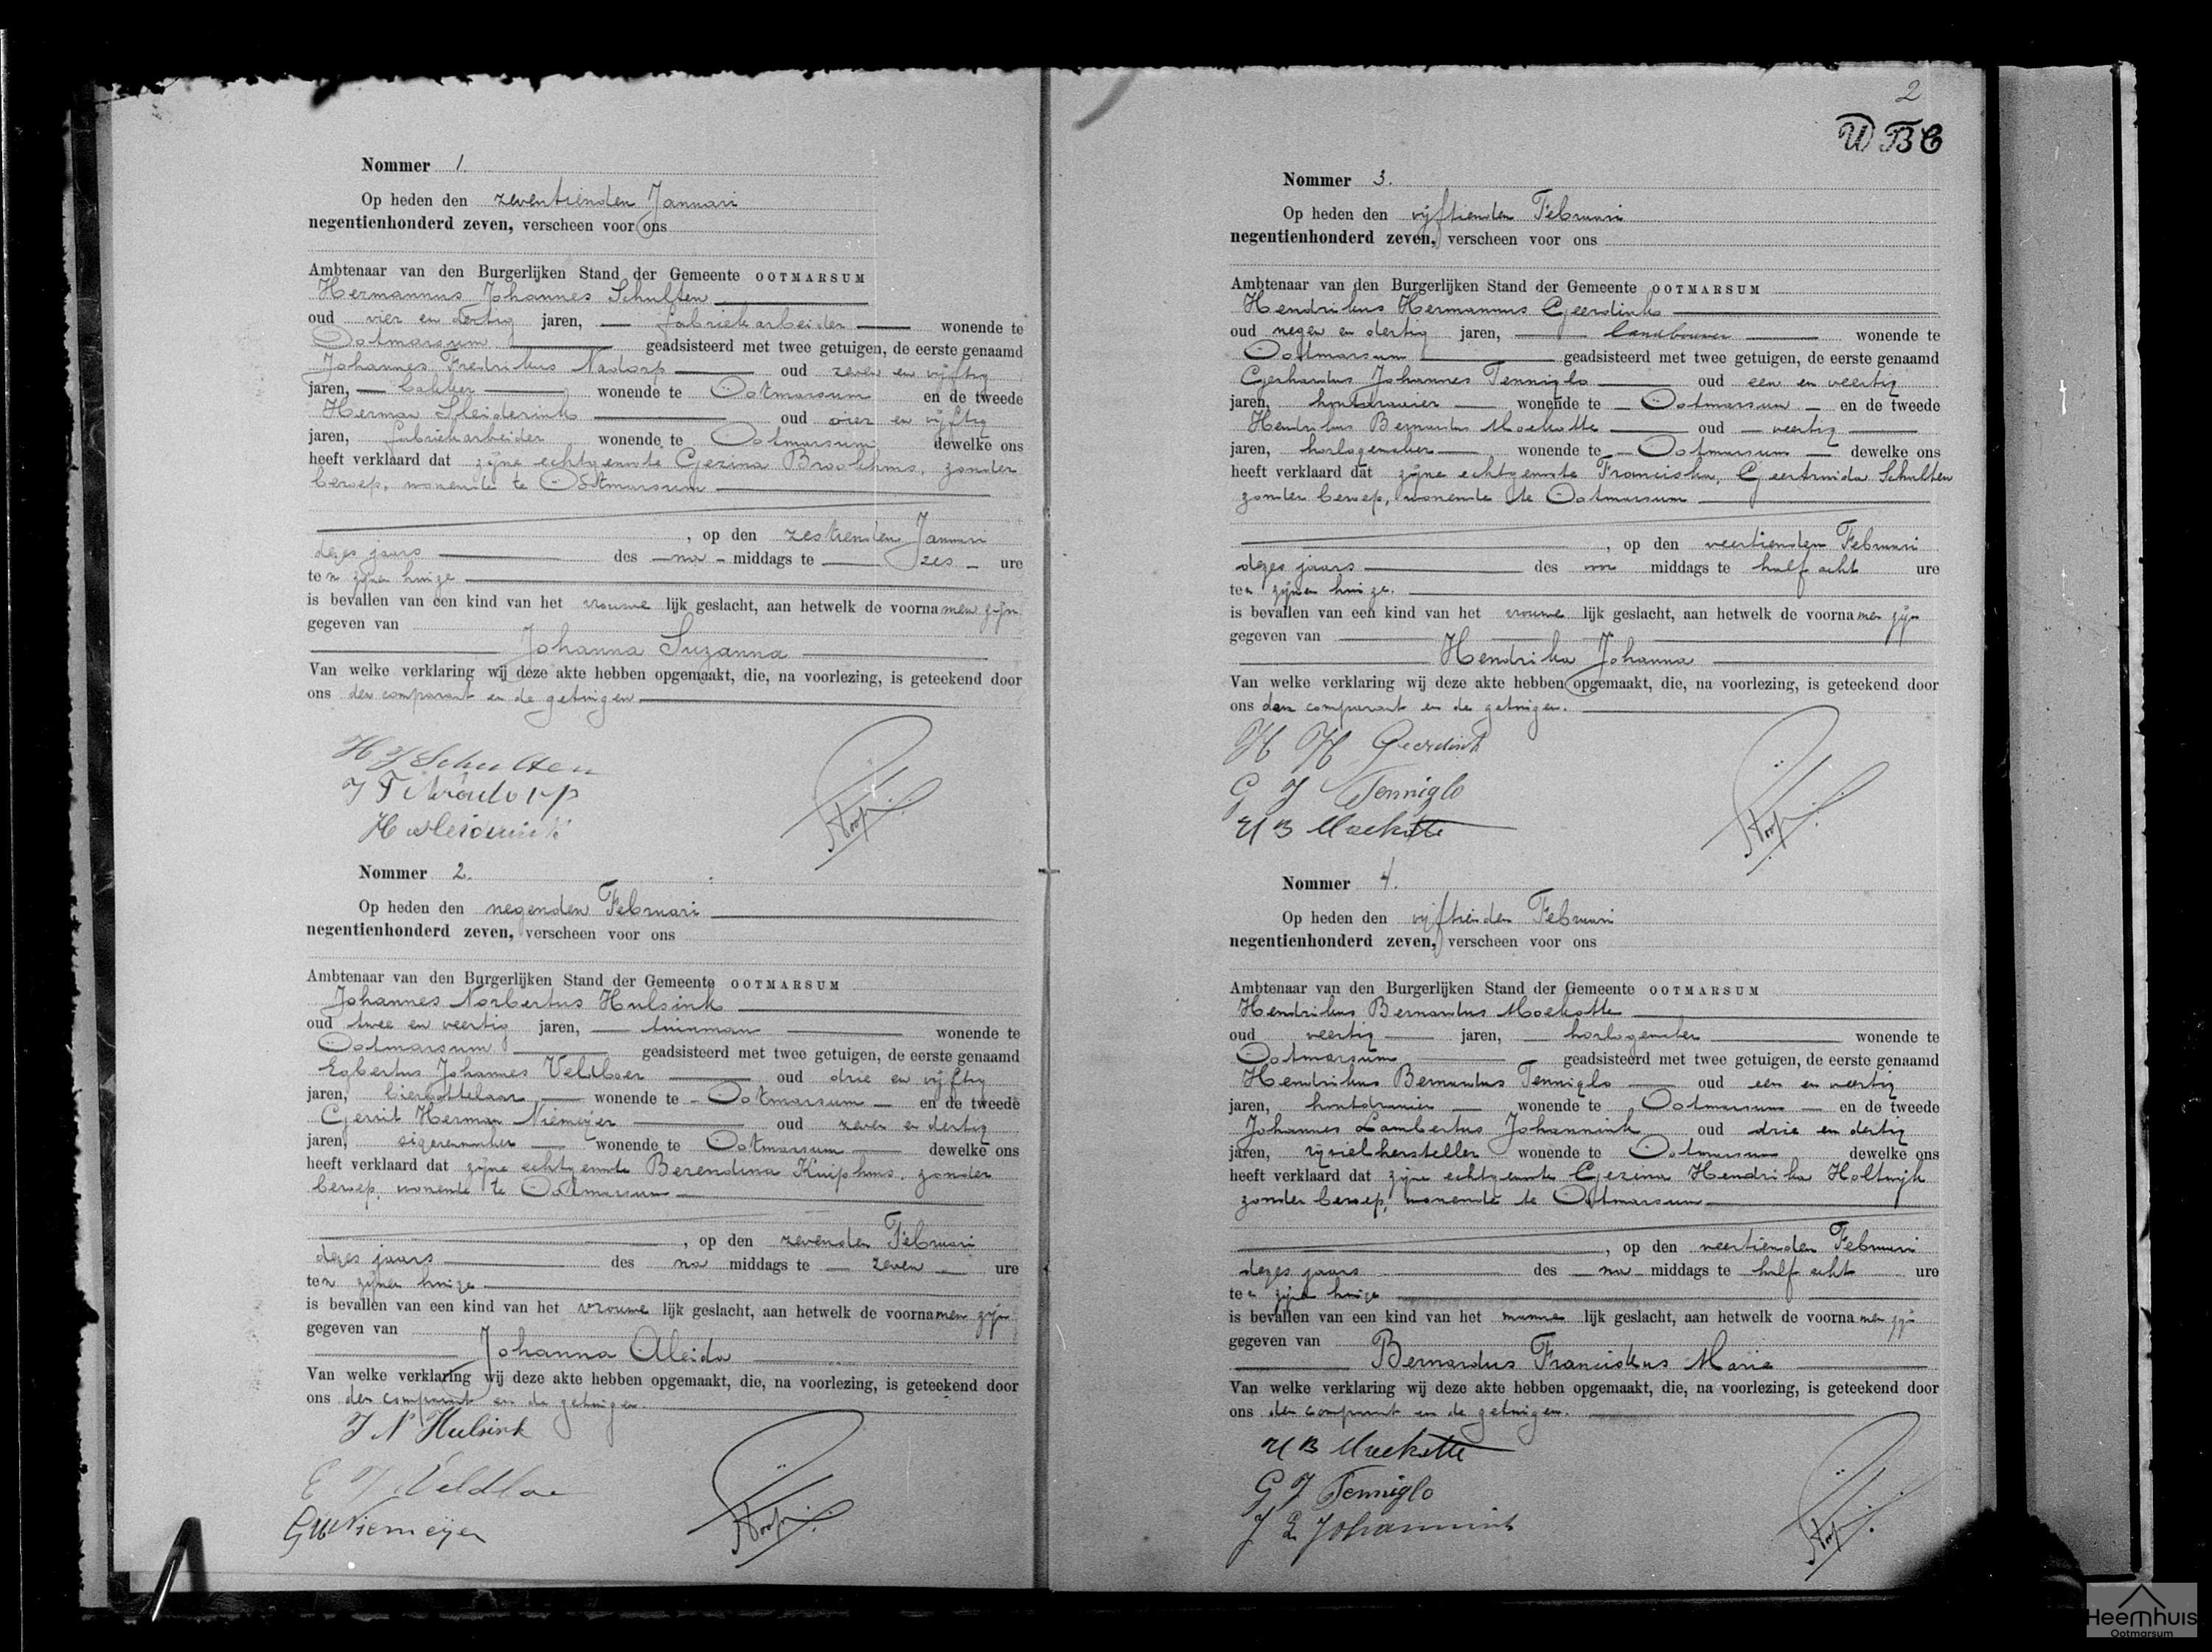 Nommer 1.
Op heden den zeventienden Januari
negentienhonderd zeven, verscheen voor ons
Ambtenaar van den Burgerlijken Stand der Gemeente OOTMARSUM
Hermannus Johannes Schulten
oud vier en dertig jaren, fabriekarbeider wonende te
Ootmarsum geadsisteerd met twee getuigen, de eerste genaamd
Johannes Fredrikus Nadorp oud zeven en vijftig
jaren, bakker wonende te Ootmarsum en de tweede
Herman Sleiderink oud vier en vijftig
jaren, fabriekarbeider wonende te Ootmarsum dewelke ons
heeft verklaard dat zijne echtgenoote Gezina Brookhuis, zonder
beroep, wonende te Ootmarsum
, op den zestienden Januari
dezes jaars des na middags te zes ure
ten zijnen huize
is bevallen van een kind van het vrouwe lijk geslacht, aan hetwelk de voornamen zijn
gegeven van
Johanna Suzanna
Van welke verklaring wij deze akte hebben opgemaakt, die, na voorlezing, is geteekend door
ons den comparant en de getuigen
H J Schulten
J F Nadorp
H Sleiderink
Nommer 2.
Op heden den negenden Februari
negentienhonderd zeven, verscheen voor ons
Ambtenaar van den Burgerlijken Stand der Gemeente OOTMARSUM
Johannes Norbertus Hulsink
oud twee en veertig jaren, tuinman wonende te
Ootmarsum geadsisteerd met twee getuigen, de eerste genaamd
Egbertus Johannes Veldboer oud drie en vijftig
jaren, bierbottelaar wonende te Ootmarsum en de tweede
Gerrit Herman Niemeijer oud zeven en dertig
jaren, sigarenmaker wonende te Ootmarsum dewelke ons
heeft verklaard dat zijne echtgenoote Berendina Kuiphuis, zonder
beroep, wonende te Ootmarsum
, op den zevenden Februari
dezes jaars des na middags te zeven ure
ten zijnen huize
is bevallen van een kind van het vrouwe lijk geslacht, aan hetwelk de voornamen zijn
gegeven van
Johanna Aleida
Van welke verklaring wij deze akte hebben opgemaakt, die, na voorlezing, is geteekend door
ons den comparant en de getuigen.
J N Hulsink
E J Veldboer
G H Niemeijer
2
Nommer 3.
Op heden den vijftienden Februari
negentienhonderd zeven, verscheen voor ons
Ambtenaar van den Burgerlijken Stand der Gemeente OOTMARSUM
Hendrikus Hermannus Geerdink
oud negen en dertig jaren, landbouwer wonende te
Ootmarsum geadsisteerd met twee getuigen, de eerste genaamd
Gerhardus Johannes Tenniglo oud een en veertig
jaren, houtdraaier wonende te Ootmarsum en de tweede
Hendrikus Bernardus Moekotte oud veertig
jaren, horlogemaker wonende te Ootmarsum dewelke ons
heeft verklaard dat zijne echtgenoote Franciska, Geertruida Schulten
zonder beroep, wonende te Ootmarsum
, op den veertienden Februari
dezes jaars des voor middags te half acht ure
ten zijnen huize.
is bevallen van een kind van het vrouwe lijk geslacht, aan hetwelk de voornamen zijn
gegeven van
Hendrika Johanna
Van welke verklaring wij deze akte hebben opgemaakt, die, na voorlezing, is geteekend door
ons den comparant en de getuigen.
H H Geerdink
G J Tenniglo
H B Moekotte
Nommer 4.
Op heden den vijftienden Februari
negentienhonderd zeven, verscheen voor ons
Ambtenaar van den Burgerlijken Stand der Gemeente OOTMARSUM
Hendrikus Bernardus Moekotte
oud veertig jaren, horlogemaker wonende te
Ootmarsum geadsisteerd met twee getuigen, de eerste genaamd
Hendrikus Bernardus Tenniglo oud een en veertig
jaren, houtdraaier wonende te Ootmarsum en de tweede
Johannes Lambertus Johannink oud drie en dertig
jaren, rijwielhersteller wonende te Ootmarsum dewelke ons
heeft verklaard dat zijne echtgenoote Gezina Hendrika Holtwijk
zonder beroep, wonende te Ootmarsum
, op den veertienden Februari
dezes jaars des na middags te half acht ure
ten zijnen huize
is bevallen van een kind van het manne lijk geslacht, aan hetwelk de voornamen zijn
gegeven van
Bernardus Franciskus Maria
Van welke verklaring wij deze akte hebben opgemaakt, die, na voorlezing, is geteekend door
ons den comparant en de getuigen.
H B Moekotte
G J Tenniglo
J L Johannink
Heemhuis
Ootmarsum